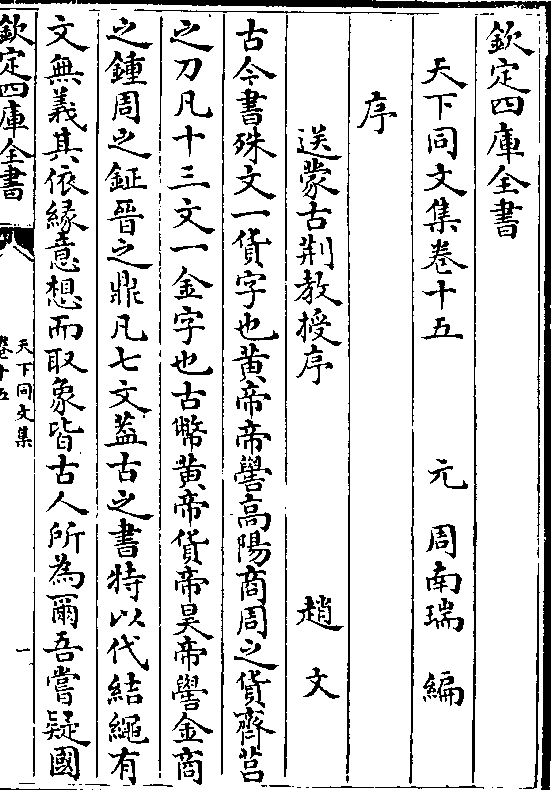 欽定四庫全書
天下同文集卷十五　元　周南瑞　編
序
送蒙古荆教授序　趙文
古今書殊文一貨字也黄帝帝嚳高陽商周之貨齊莒
之刀凡十三文一金字也古幣黄帝貨帝昊帝嚳金商
之鍾周之鉦晉之鼎凡七文葢古之書特以代結繩有
文無義其依緣意想而取象皆古人所為爾吾嘗疑國
欽定四庫全書
天下同文集
卷十五
一